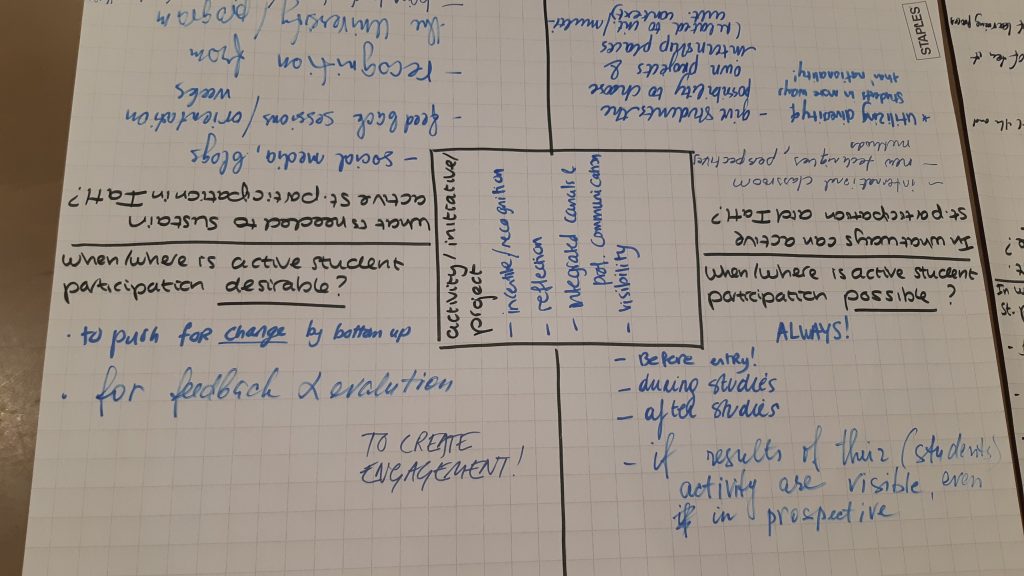 When/where is active student
participation desirable?
• to push for change by bottom up
• for feedback & evalution
TO CREATE
ENGAGEMENT!
When/where is active student
participation possible?
ALWAYS!
- Before entry!
- during studies
- after studies
- if results of their (students)
activity are visible, even
if in prospective
activity/initiative/
project
- incentive/recognition
- reflection
- integrated
prof. communication
- visibility
What is needed to sustain
active st. participation in IaH?
- social media, blogs
- feedback sessions/orientation
weeks
- recognition from
the University/program
In what ways can active
st. participation and IaH?
- international classroom
- new techniques, perspectives
methods
* Utilizing diversity of
students in more ways
than nationality!
- give students the
possibility to choose
own projects &
internship places
(related to int/multi
cult. context)
STAPLES